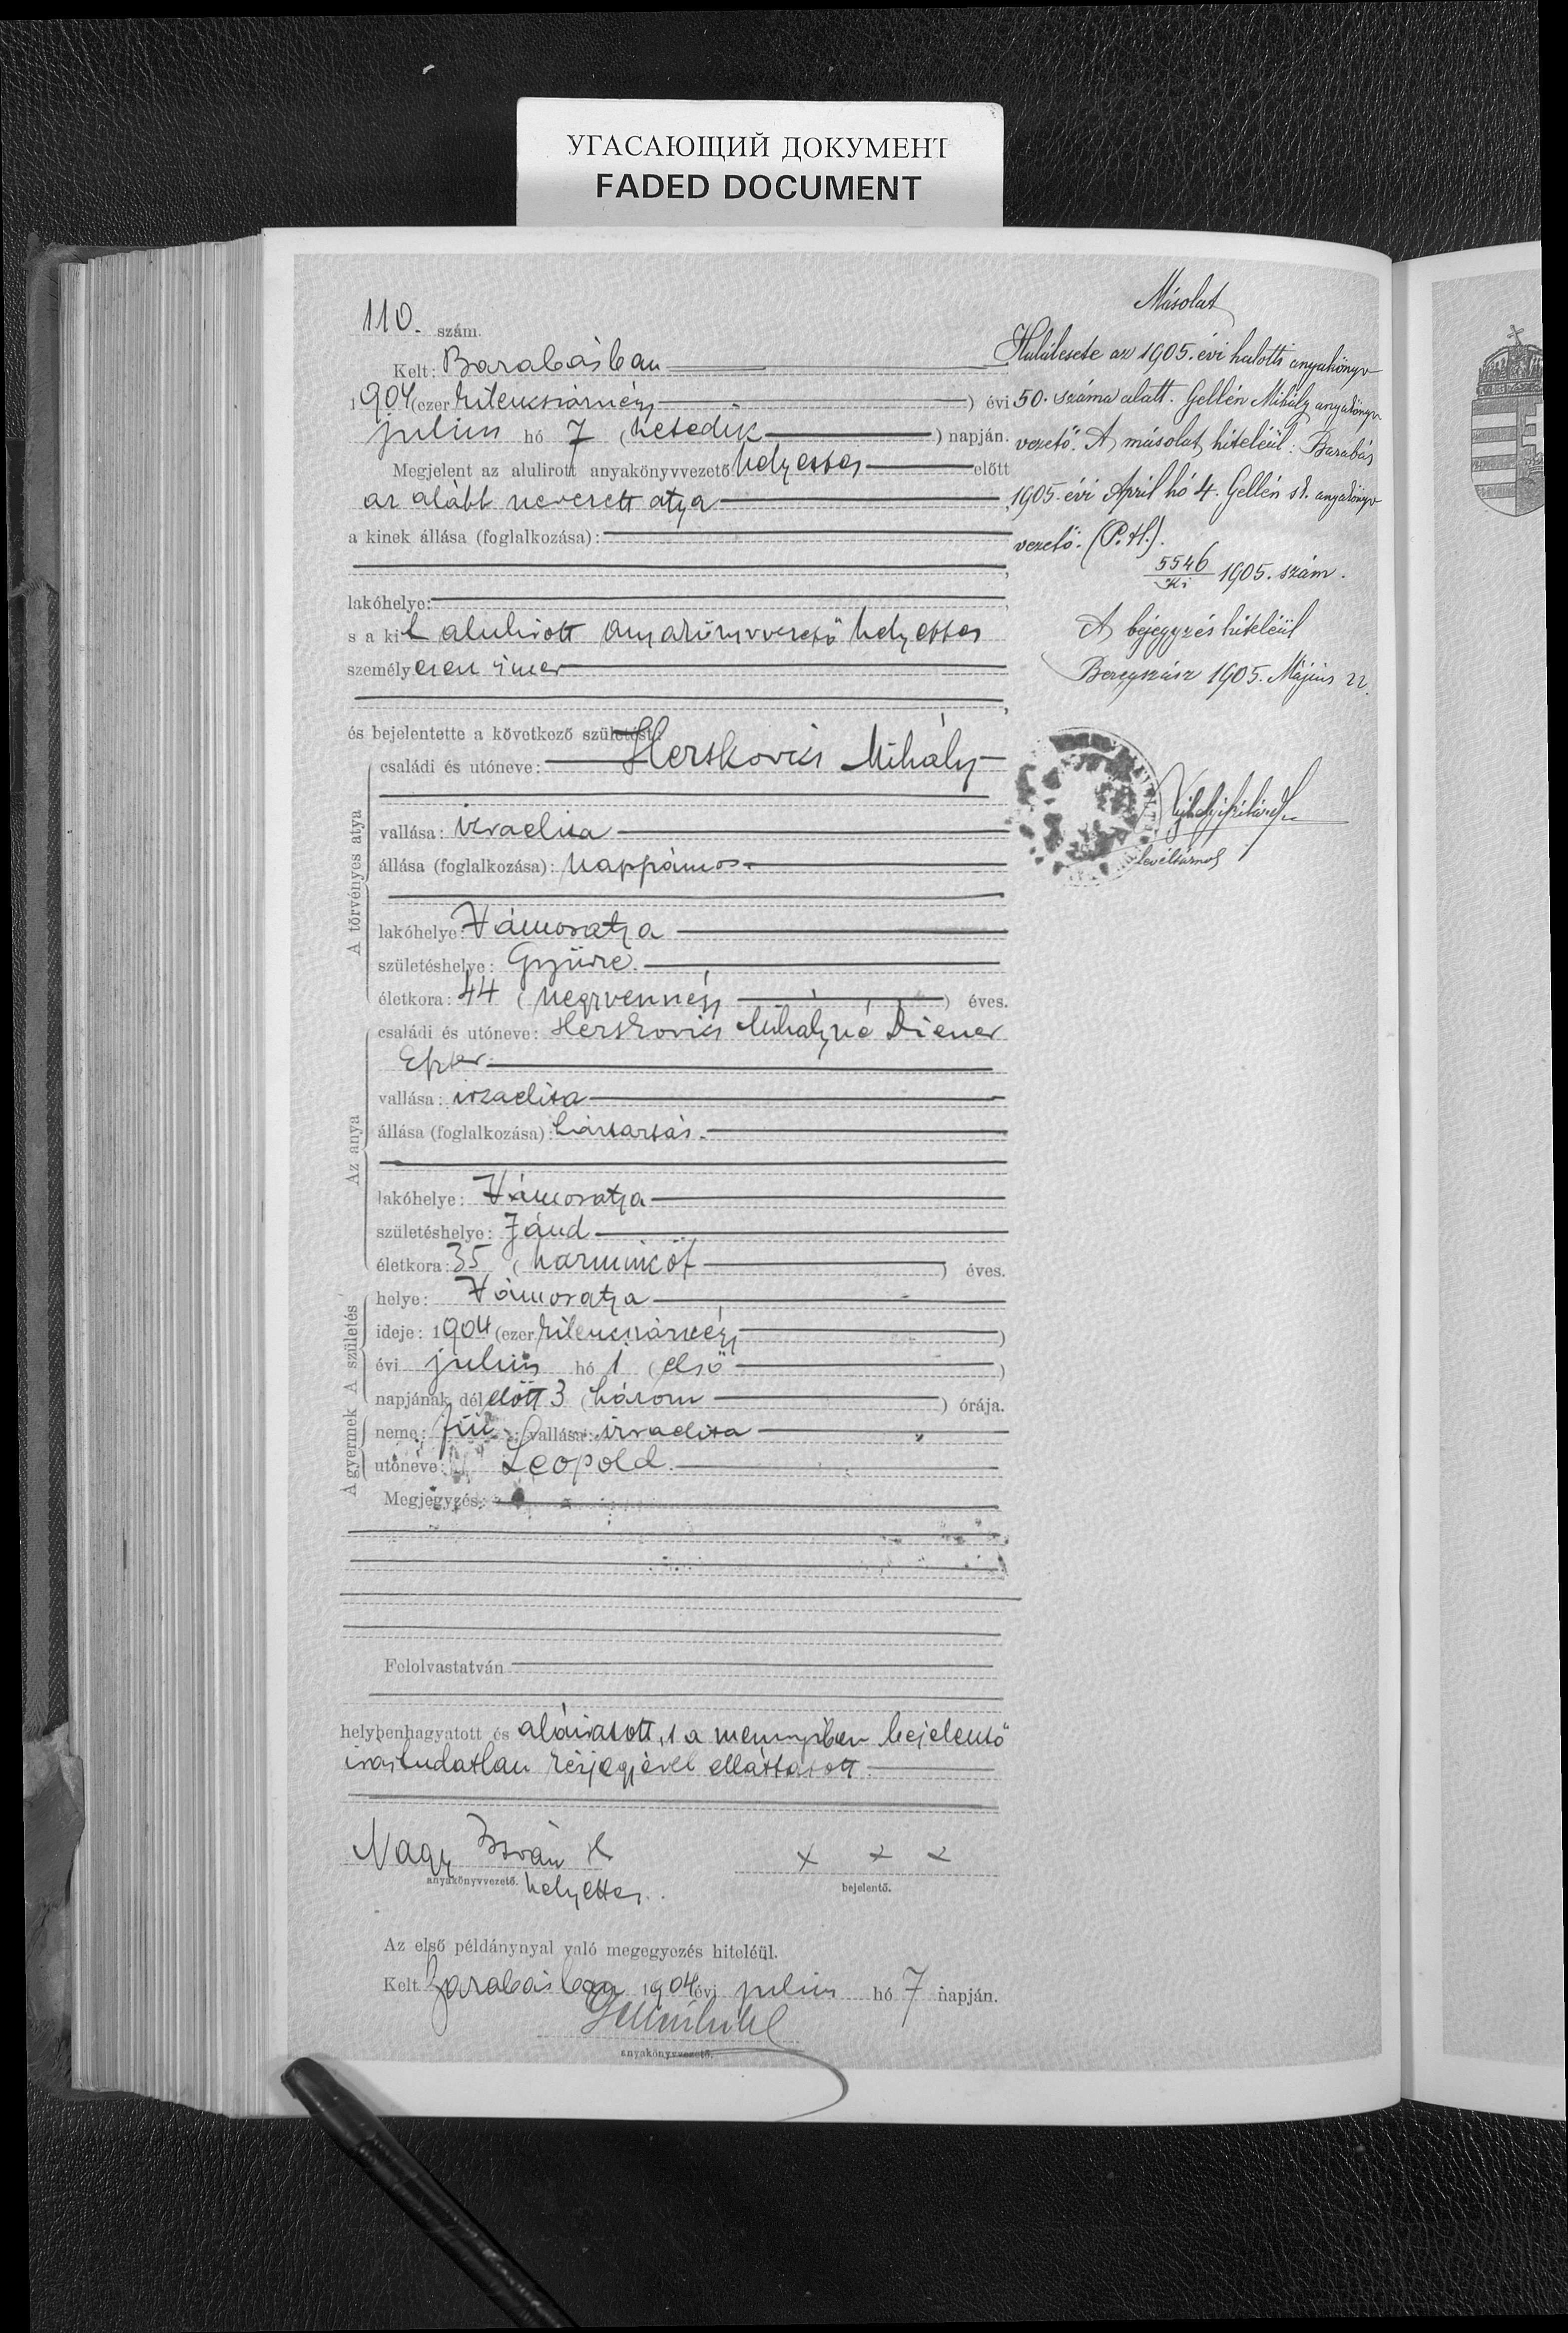 УГАСАЮЩИЙ ДОКУМЕНТ
FADED DOCUMENT
110. szám.
Kelt: Barabásban
1904 (ezer kilencszáznégy ) évi
julius hó 7 (hetedik ) napján.
Megjelent az alulirott anyakönyvvezető helyettes előtt
az alább nevezett atya
a kinek állása (foglalkozása):
lakóhelye:
s a kit alulirott anyakönyvvezető helyettes
személyesen ismer
és bejelentette a következő születést:
A törvényes atya
családi és utóneve: Herskovics Mihály
vallása: izraelita
állása (foglalkozása): nappámos
lakóhelye: Vámosatya
születéshelye: Gyüre.
életkora: 44 (negyvennégy ) éves.
Az anya
családi és utóneve: Herskovics Mihályné Diener
Eszter
vallása: izraelita
állása (foglalkozása): háztartás.
lakóhelye: Vámosatya
születéshelye: Jánd
életkora: 35 (harminczöt ) éves.
A születés
helye: Vámosatya
ideje: 1904 (ezer kilencszáznégy )
évi julius hó 1 (első )
napjának délelőtt 3 (három ) órája.
A gyermek
neme: fiú; vallása: izraelita
utóneve: Leopold.
Megjegyzés:
Felolvastatván
helybenhagyatott és aláiratott, s a mennyiben bejelentő
irástudatlan kézjegyével elláttatott.
Nagy István h.
anyakönyvvezető. helyettes.
x x x
bejelentő.
Az első példánynyal való megegyezés hiteléül.
Kelt Barabásban 1904 évi julius hó 7 napján.
anyakönyvvezető.
Másolat
Halálesete az 1905. évi halotti anyakönyv
50. száma alatt. Gellén Mihály anyakönyv
vezető. A másolat hiteléül: Barabás
1905. évi April hó 4. Gellén sk. anyakönyv
vezető. (P.H.).
5546/Ki 1905. szám.
A bejegyzés hiteléül
Beregszász 1905. Május 22.
levéltárnok